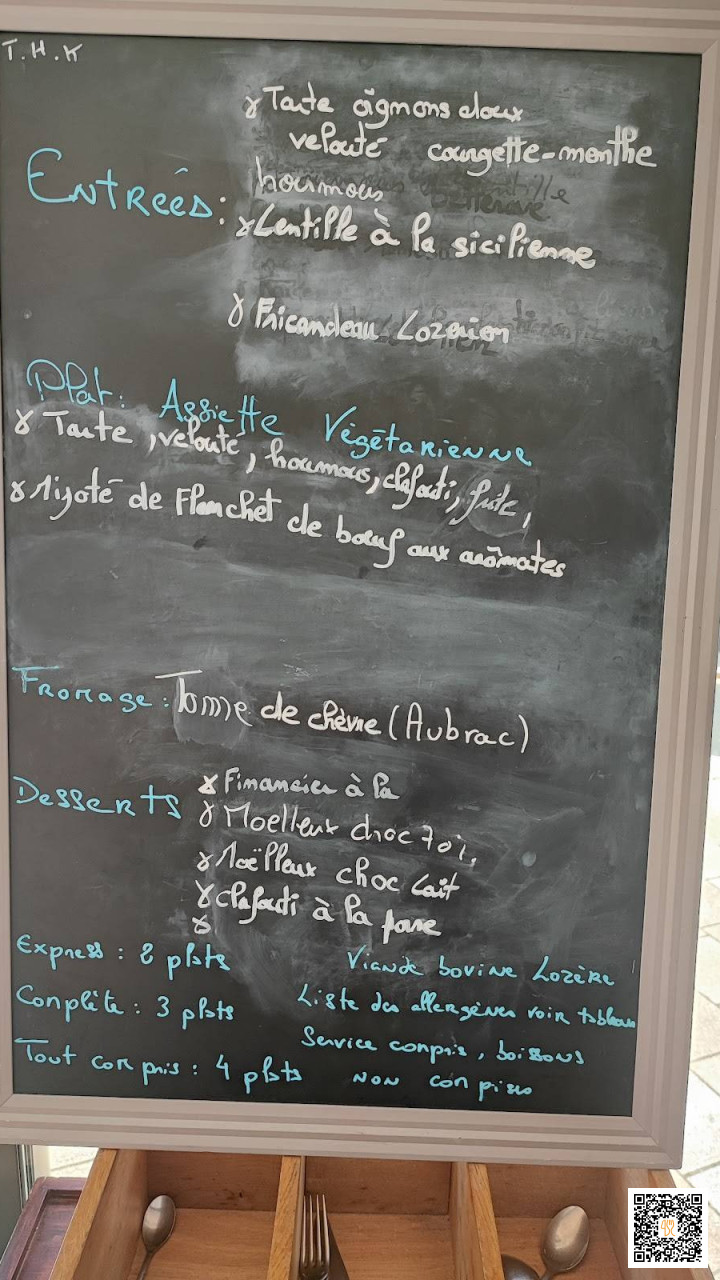 T.H.K
Tarte oignons doux
velouté courgette-menthe
houmous
Entrées:
Lentille à la sicilienne
Fricandeau Lozerien
Plat: Assiette Végétarienne
Tarte, velouté, houmous, clafouti, frite,
Mijoté de Flanchet de bœuf aux arômates
Fromage: Tome de chèvre (Aubrac)
Desserts
Financier à la
Moelleux choc 70%
Moëlleux choc Lait
clafouti à la
Express: 2 plats
Viande bovine Lozère
Complète: 3 plats
Liste des allergènes voir tableau
Service compris, boissons
Tout compris: 4 plats
non